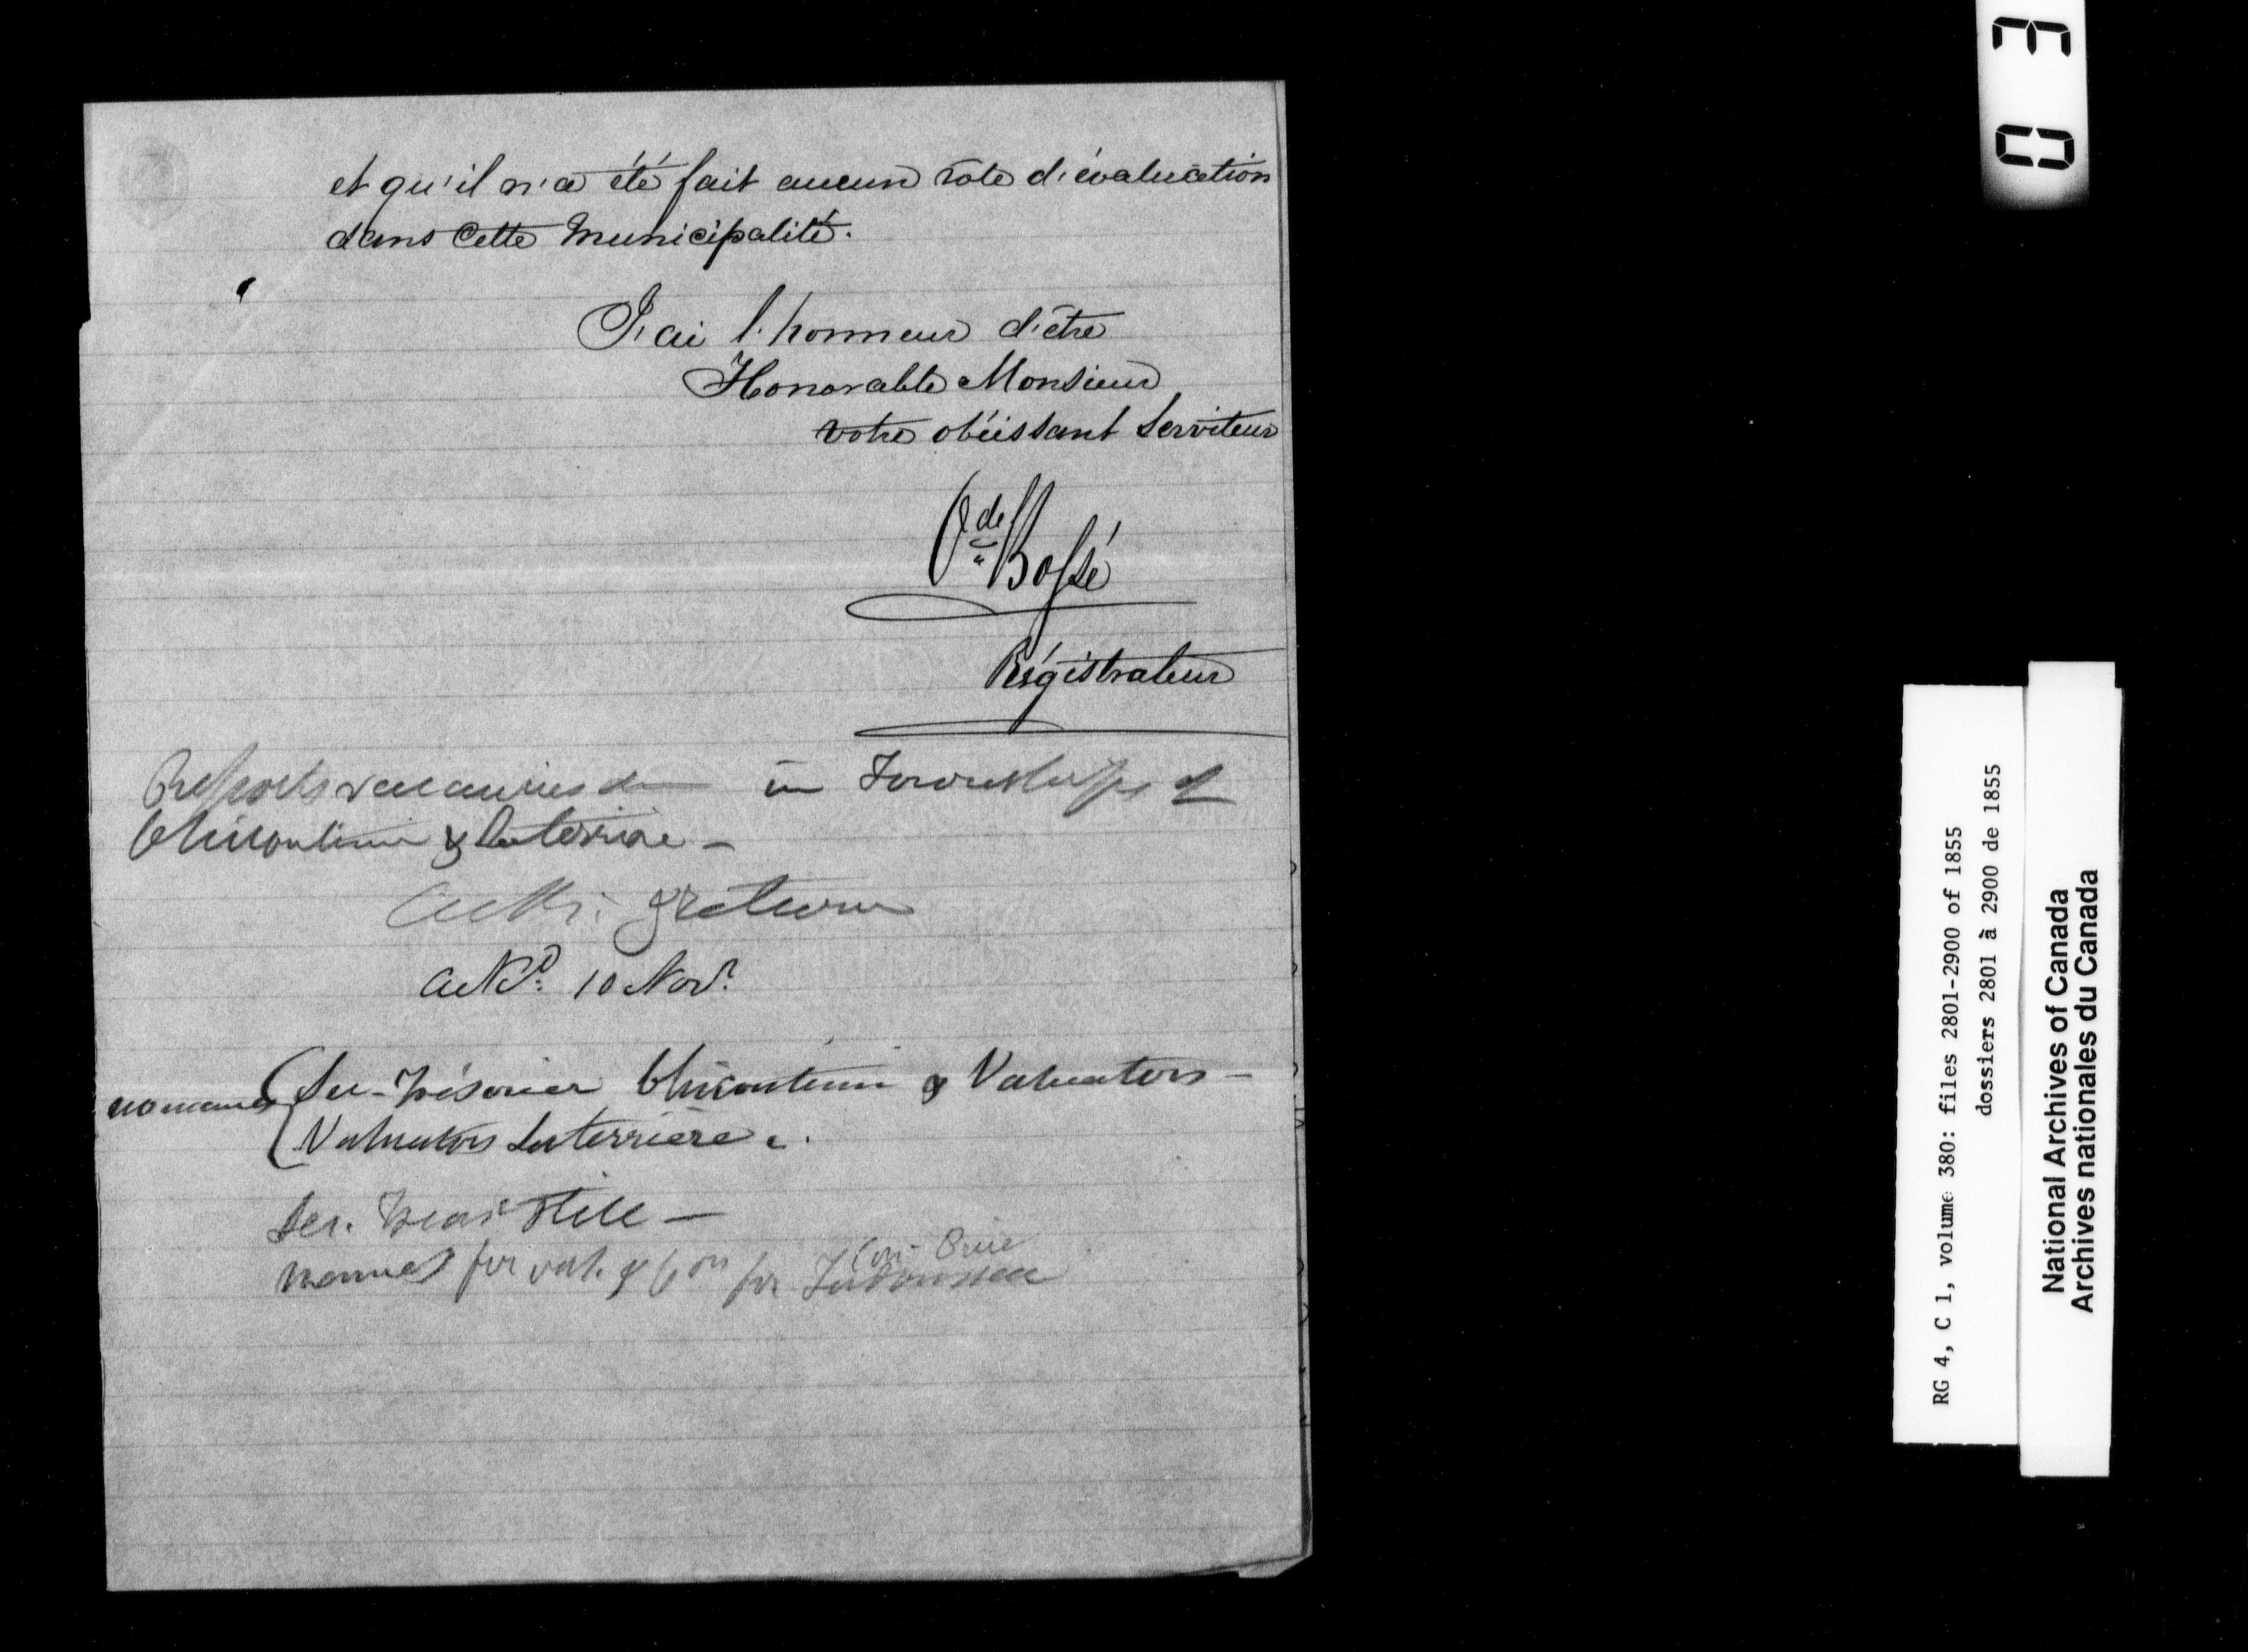 et qu'il n'a été fait aucun rôle d'évaluation
dans cette Municipalité.
J'ai l'honneur d'être
Honorable Monsieur
votre obéissant Serviteur
Ode Bossé
Régistrateur
Reports vacancies in Townships of
Chicoutimi & Laterrière -
Ack. & return
Ackd. 10 Novr.
Sec-trésorier Chicoutimi & Valuators -
Valuators Laterrière.
Sec. Treasr
names for val. & for Tadoussac
03
RG 4, C 1, volume 380: files 2801-2900 of 1855
dossiers 2801 à 2900 de 1855
National Archives of Canada
Archives nationales du Canada